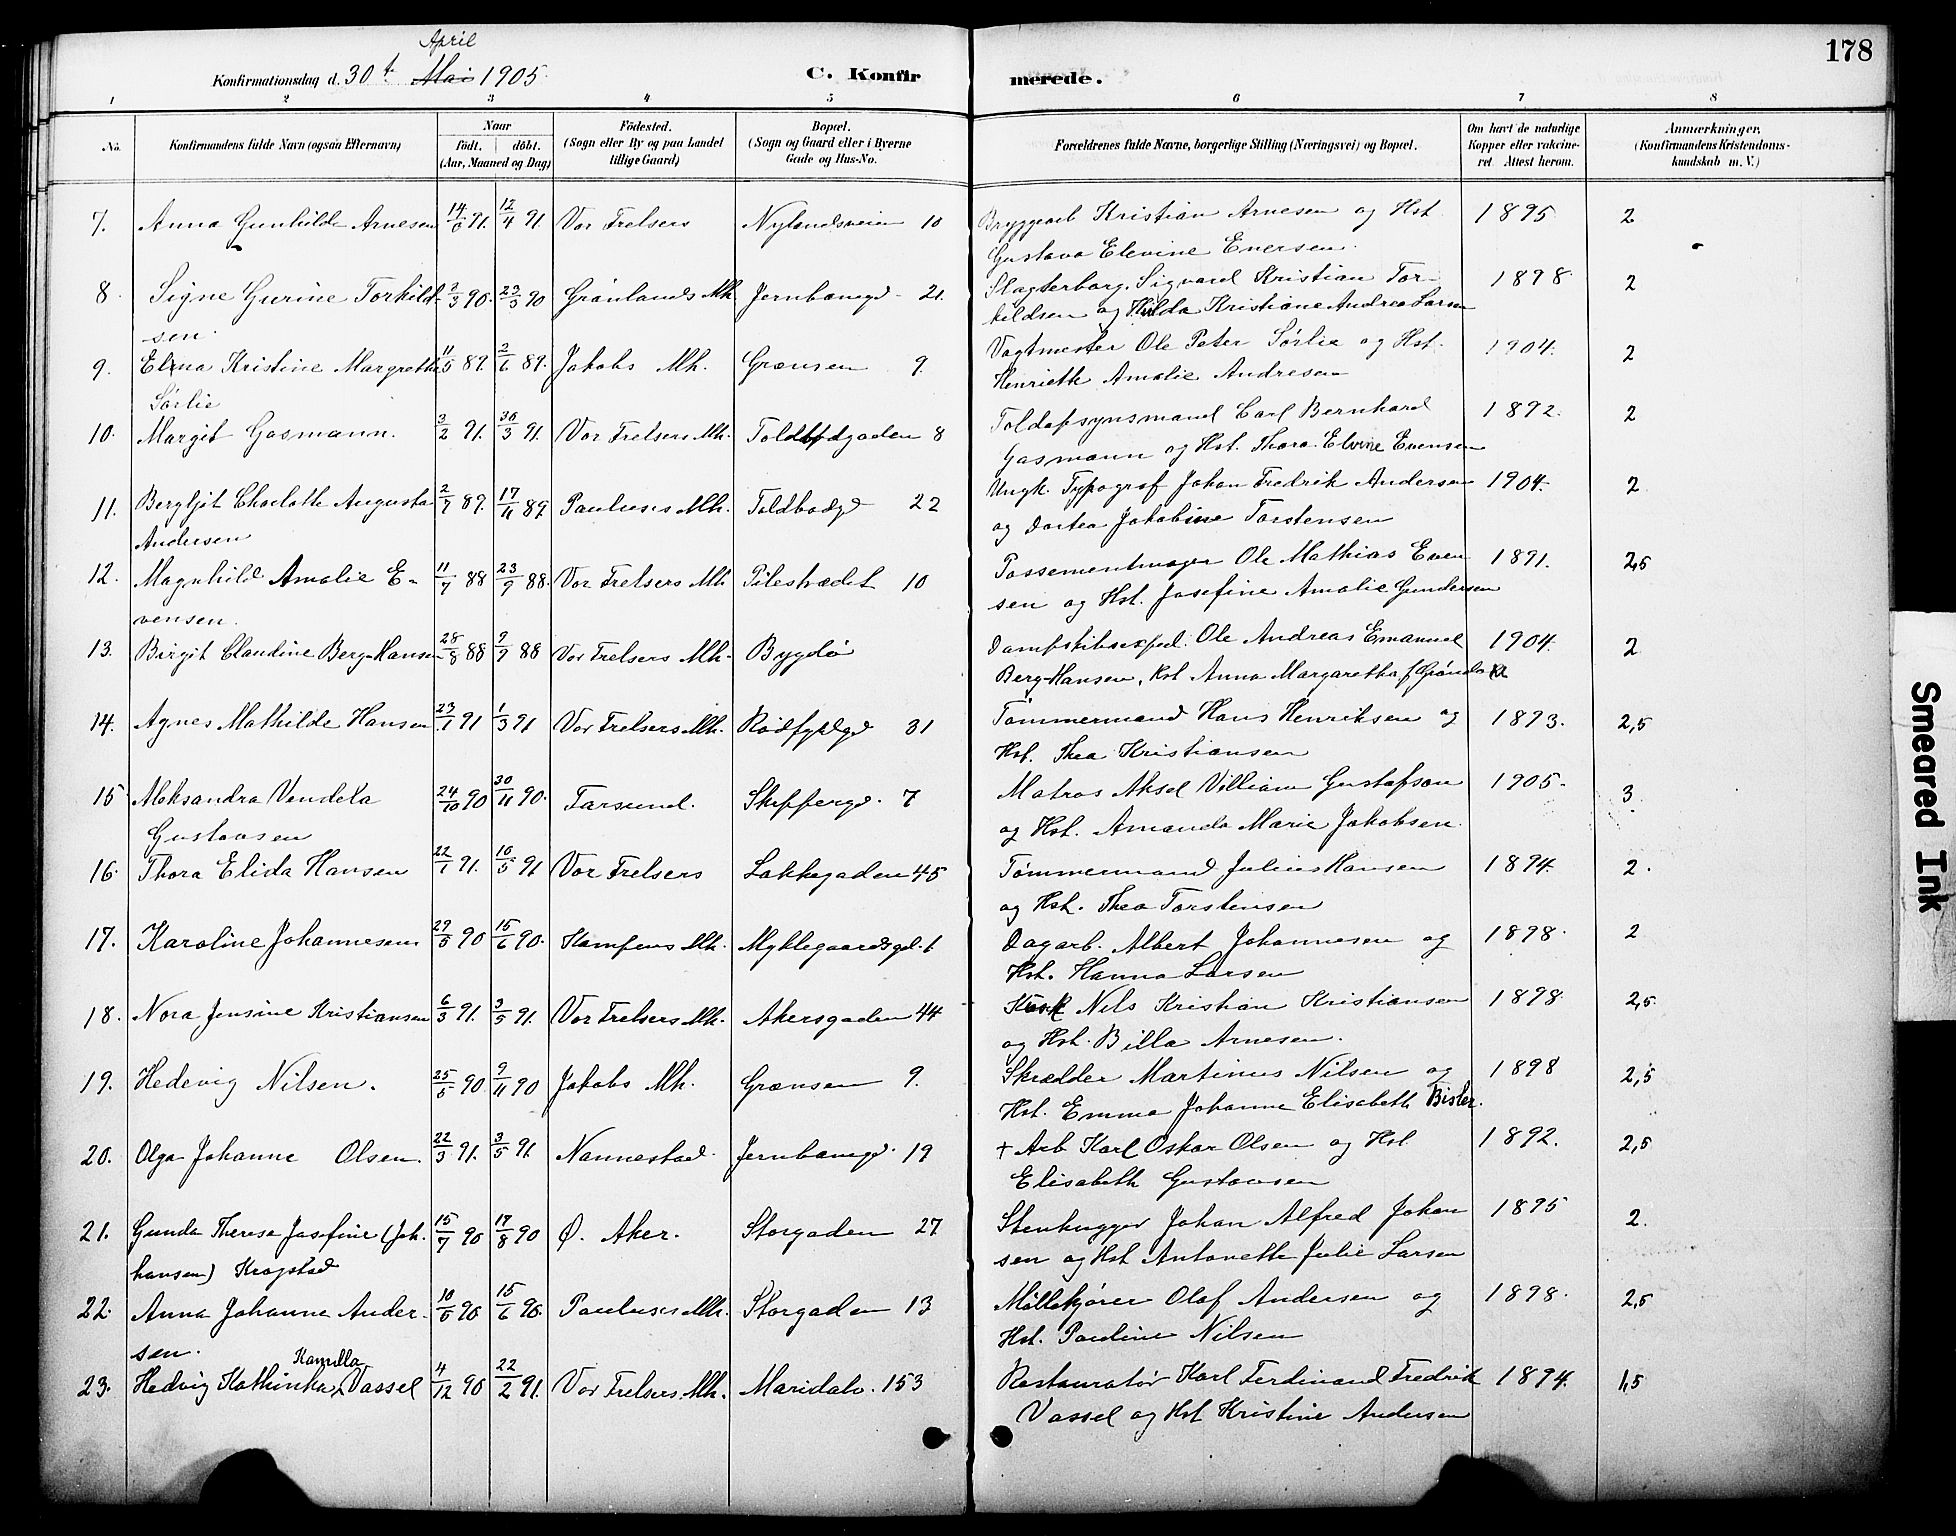 178
April
Konfirmationsdag d. 30t Mai 1905. C. Konfir merede.
1 2 3 4 5 6 7 8
No. Konfirmandens fulde Navn (ogsaa Efternavn) Naar födt. döbt. (Aar, Maaned og Dag) Födested. (Sogn eller By og paa Landet tillige Gaard) Bopæl. (Sogn og Gaard eller i Byerne Gade og Hus-No. Forældrenes fulde Navne, borgerlige Stilling (Næringsvei) og Bopæl. Om havt de naturlige Kopper eller vakcineret. Attest herom. Anmærkninger. (Konfirmandens Kristendomskundskab m. V.)
7. Anna Gunhilde Arnesen 91. 12/4 91. Vor Frelsers Nylandsveien 10 Bryggearb Kristian Arnesen og Hst 1895 2
Gustava Elevine Eversen.
8. Signe Gurine Torkild- 2/3 90. 23/3 90 Grønlands Mh. Jernbanegd. 21. Slagterborg. Sigvard Kristian Tor- 1898 2
sen. kildsen og Hulda Kristiane Andrea Larsen
9. Elna Kristine Margrethe 11/5 89. 2/6 89. Jakobs Mh. Grænsen 9. Vagtmester Ole Peter Sørlie og Hst. 1904. 2
Sørlie Henriette Amalie Andresen
10. Margit Gasmann. 3/2 91. 30/3 91. Vor Frelsers Mh. Toldbodgaden 8 Toldopsynsmand Carl Bernhard 1892. 2
Gasmann og Hst. Thora Elvine Evensen
11. Bergljot Charlotte Augusta 2/7 89. 17/11 89. Paulusis Mh. Toldbodgd 22 Ungk. Typograf Johan Fredrik Andersen 1904. 2
Andersen og Dortea Jakobine Torstensen
12. Magnhild Amalie E- 11/7 88 23/9 88. Vor Frelsers Mh Pilestrædet 10 Possementmager Ole Mathias Even 1891. 2,5
vensen. sen og Hst. Josefine Amalie Gundersen
13. Birgit Claudine Berg-Hansen 28/8 88 9/9 88 Vor Frelsers Mh. Bygdø Dampskibsexped. Ole Andreas Emanuel 1904. 2
Berg-Hansen, Hst Anna Margaretha f.
14. Agnes Mathilde Hansen 23/1 91 1/3 91 Vor Frelsers Mh. Rødfyldgd 31 Tømmermand Hans Henriksen og 1893. 2,5
Hst. Thea Kristiansen
15 Aleksandra Vendela 24/10 90 30/11 90. Farsund. Skippergd. 7 Matros Aksel Villiam Gustafson 1905. 3
Gustavsen og Hst. Amanda Marie Jakobsen.
16. Thora Elida Hansen 22/1 91. 10/5 91 Vor Frelsers Lakkegaden 45 Tømmermand Julius Hansen 1894. 2.
og Hst. Thea Torstensen
17. Karoline Johannesen 29/5 90 15/6 90. Kampens Mh. Myklegaardsgd. 1 Dagarb. Albert Johannesen og 1898. 2
Hst. Hanna Larsen
18. Nora Jensine Kristiansen 6/3 91. 3/5 91. Vor Frelsers Mh. Akersgaden 44 Kusk Nils Kristian Kristiansen 1898 2,5
og Hst. Billa Arnesen.
19. Hedevig Nilsen. 25/5 90. 9/11 90 Jakobs Mh. Grænsen 9. Skrædder Martinus Nilsen og 1898 2,5
Hst. Emma Johanne Elisabeth Bisler.
20. Olga Johanne Olsen. 22/3 91. 3/5 91. Nannestad. Jernbanegd. 19 + Arb Karl Oskar Olsen og Hst 1892. 2,5
Elisabeth Gustavsen
21. Gunda Therese Josefine (Joh. 15/7 90 17/8 90 Ø. Aker. Storgaden 27 Stenhugger Johan Alfred Johan 1895 2.
hansen) Krogstad sen og Hst Antonette Julie Larsen
22. Anna Johanne Ander. 10/5 90 15/6 90. Paulusis Mh. Storgaden 13 Møllekjører Olaf Andersen og 1898. 2,5
sen. Hst. Pauline Nilsen
Kamilla
23. Hedvig Kathinka Vassel 4/12 90 22/2 91. Vor Frelsers Mh. Maridalv. 153 Restauratør Karl Ferdinand Fredrik 1894. 1,5
Vassel og Hst Kristine Andersen
Smeared Ink